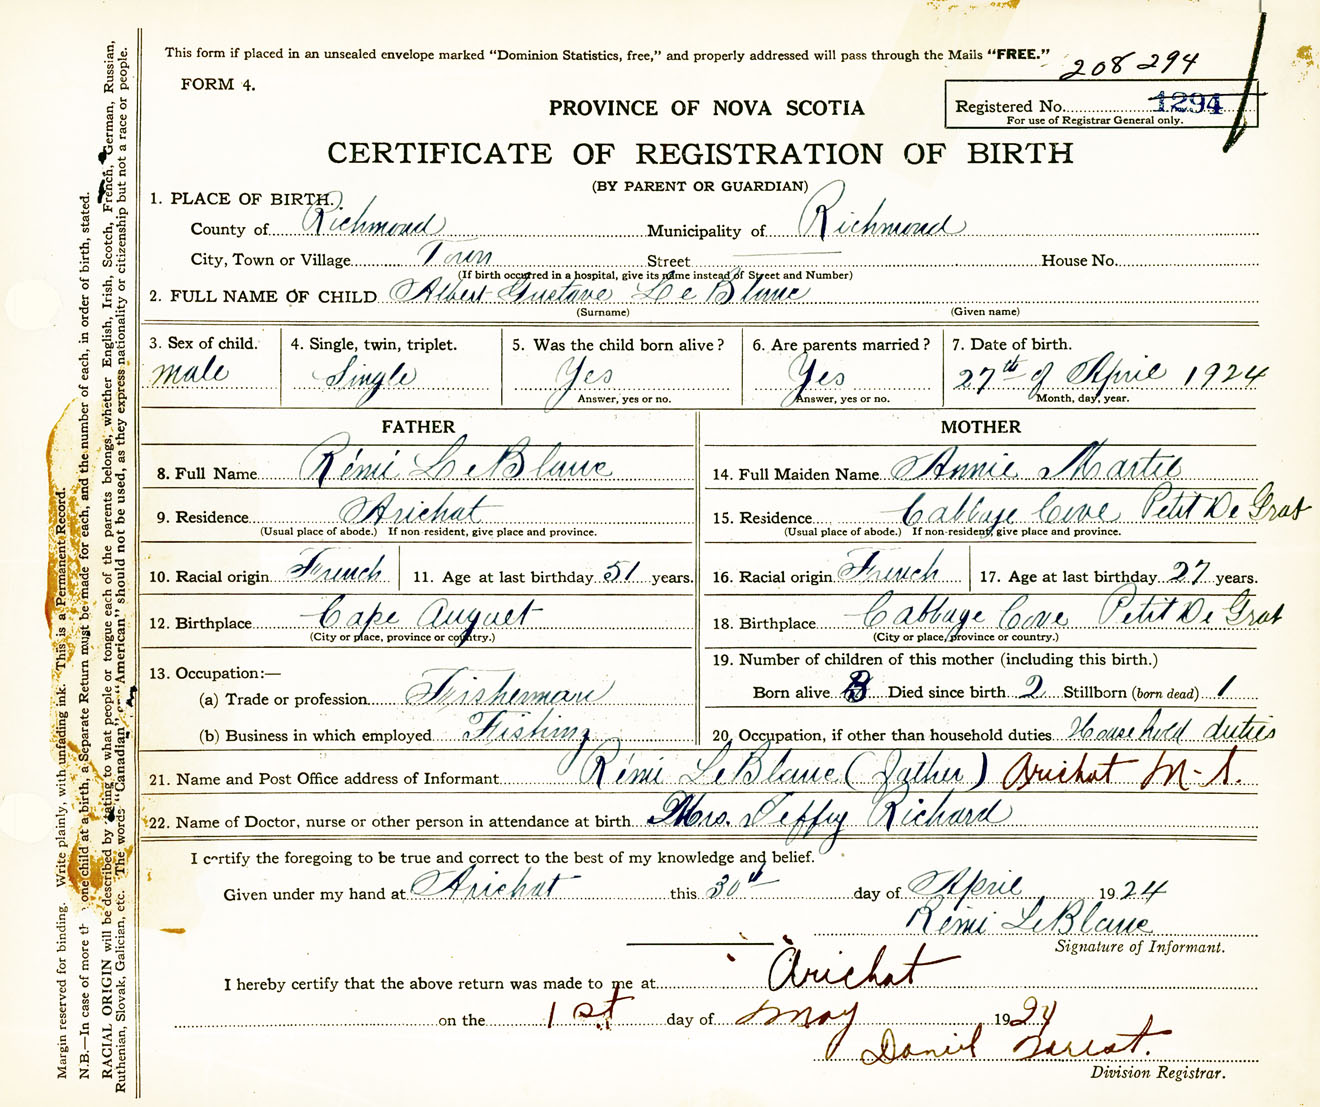 This form if placed in an unsealed envelope marked "Dominion Statistics, free," and properly addressed will pass through the Mails "FREE."
208 294
FORM 4.
Registered No. 1294
For use of Registrar General only.
PROVINCE OF NOVA SCOTIA
CERTIFICATE OF REGISTRATION OF BIRTH
(BY PARENT OR GUARDIAN)
1. PLACE OF BIRTH.
County of Richmond Municipality of Richmond
City, Town or Village Town Street House No.
(If birth occurred in a hospital, give its name instead of Street and Number)
2. FULL NAME OF CHILD Albert Gustave Le Blanc
(Surname) (Given name)
3. Sex of child. 4. Single, twin, triplet. 5. Was the child born alive? 6. Are parents married? 7. Date of birth.
male Single Yes Yes 27th of April 1924
Answer, yes or no. Answer, yes or no. Month, day, year.
FATHER MOTHER
8. Full Name Rémi LeBlanc 14. Full Maiden Name Annie Martel
9. Residence Arichat 15. Residence Cabbage Cove Petit De Grat
(Usual place of abode.) If non-resident, give place and province. (Usual place of abode.) If non-resident, give place and province.
10. Racial origin French 11. Age at last birthday 51 years. 16. Racial origin French 17. Age at last birthday 27 years.
12. Birthplace Cape Auguet 18. Birthplace Cabbage Cove Petit De Grat
(City or place, province or country.) (City or place, province or country.)
13. Occupation:— 19. Number of children of this mother (including this birth.)
(a) Trade or profession Fisherman Born alive Died since birth 2 Stillborn (born dead) 1
(b) Business in which employed Fishing 20. Occupation, if other than household duties Household duties
21. Name and Post Office address of Informant Rémi LeBlanc (father) Arichat N-S.
22. Name of Doctor, nurse or other person in attendance at birth Mrs. Jeffry Richard
I certify the foregoing to be true and correct to the best of my knowledge and belief.
Given under my hand at Arichat this 30th day of April 1924
Rémi LeBlanc
Signature of Informant.
I hereby certify that the above return was made to me at Arichat
on the 1st day of May 1924
Daniel
Division Registrar.
Margin reserved for binding. Write plainly, with unfading ink. This is a Permanent Record.
N.B.—In case of more one child at a birth, a Separate Return must be made for each, and the number of each, in order of birth, stated.
RACIAL ORIGIN will be described by stating to what people or tongue each of the parents belongs, whether English, Irish, Scotch, French, German, Russian,
Ruthenian, Slovak, Galician, etc. The words "Canadian" or "American" should not be used, as they express nationality or citizenship but not a race or people.